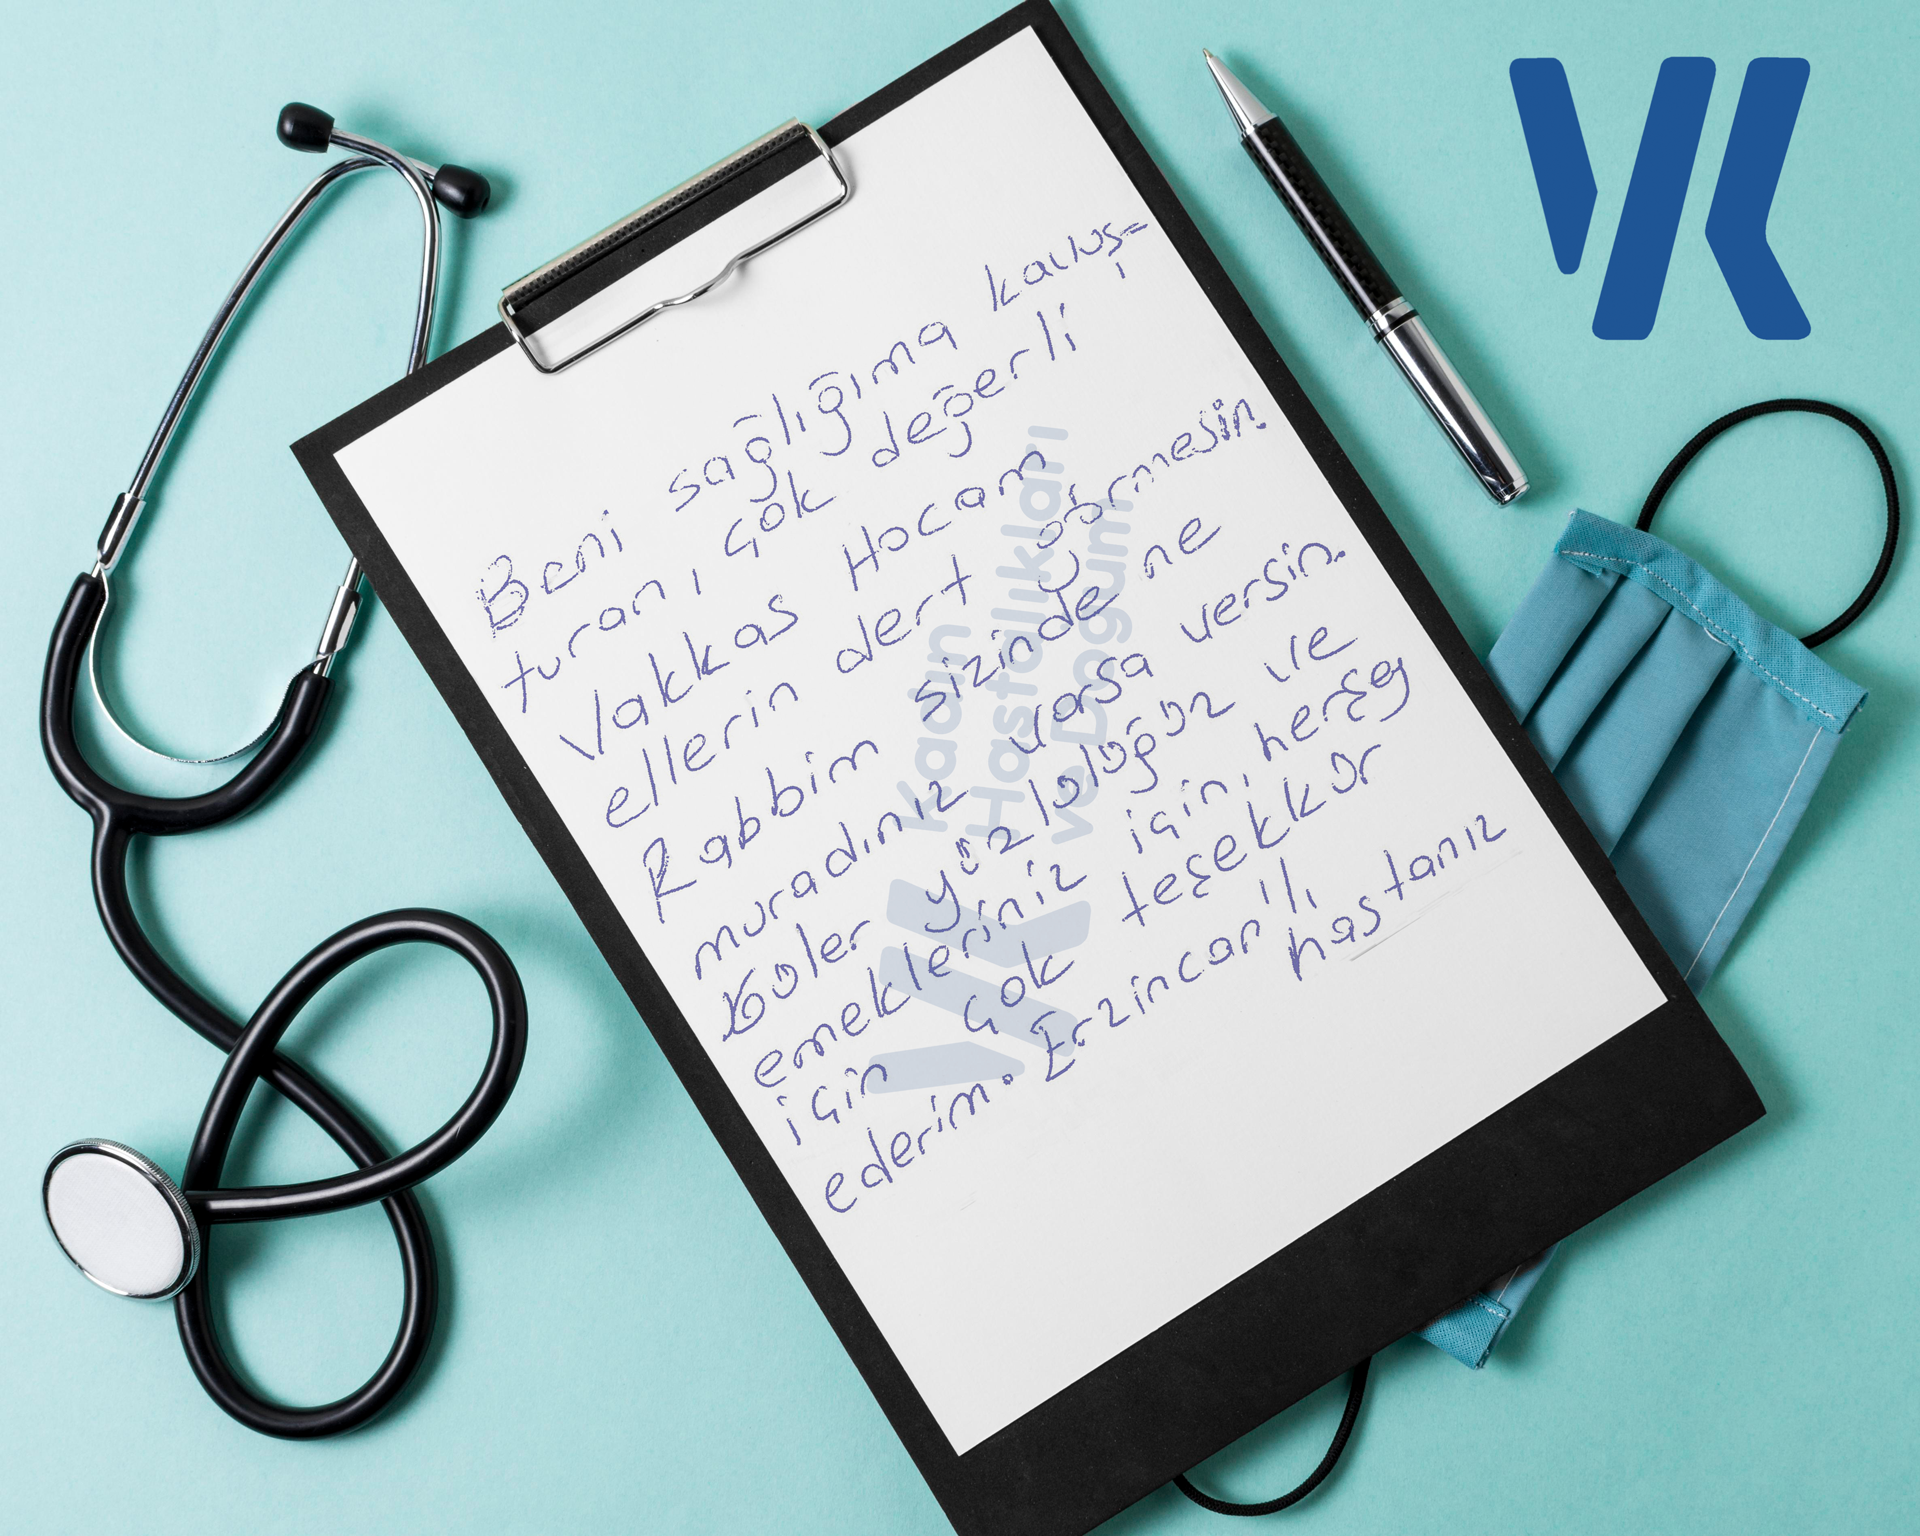 Beni sağlığıma kavuş=
turan, çok değerli
Vakkas Hocam
ellerin dert görmesin.
Rabbim sizinde ne
muradınız varsa versin.
Güler yüzlülüğüz ve
emekleriniz için, herşey
için çok teşekkür
ederim. Erzincan'lı
hastanız
Kadın
Hastalıkları
ve Doğum
VK